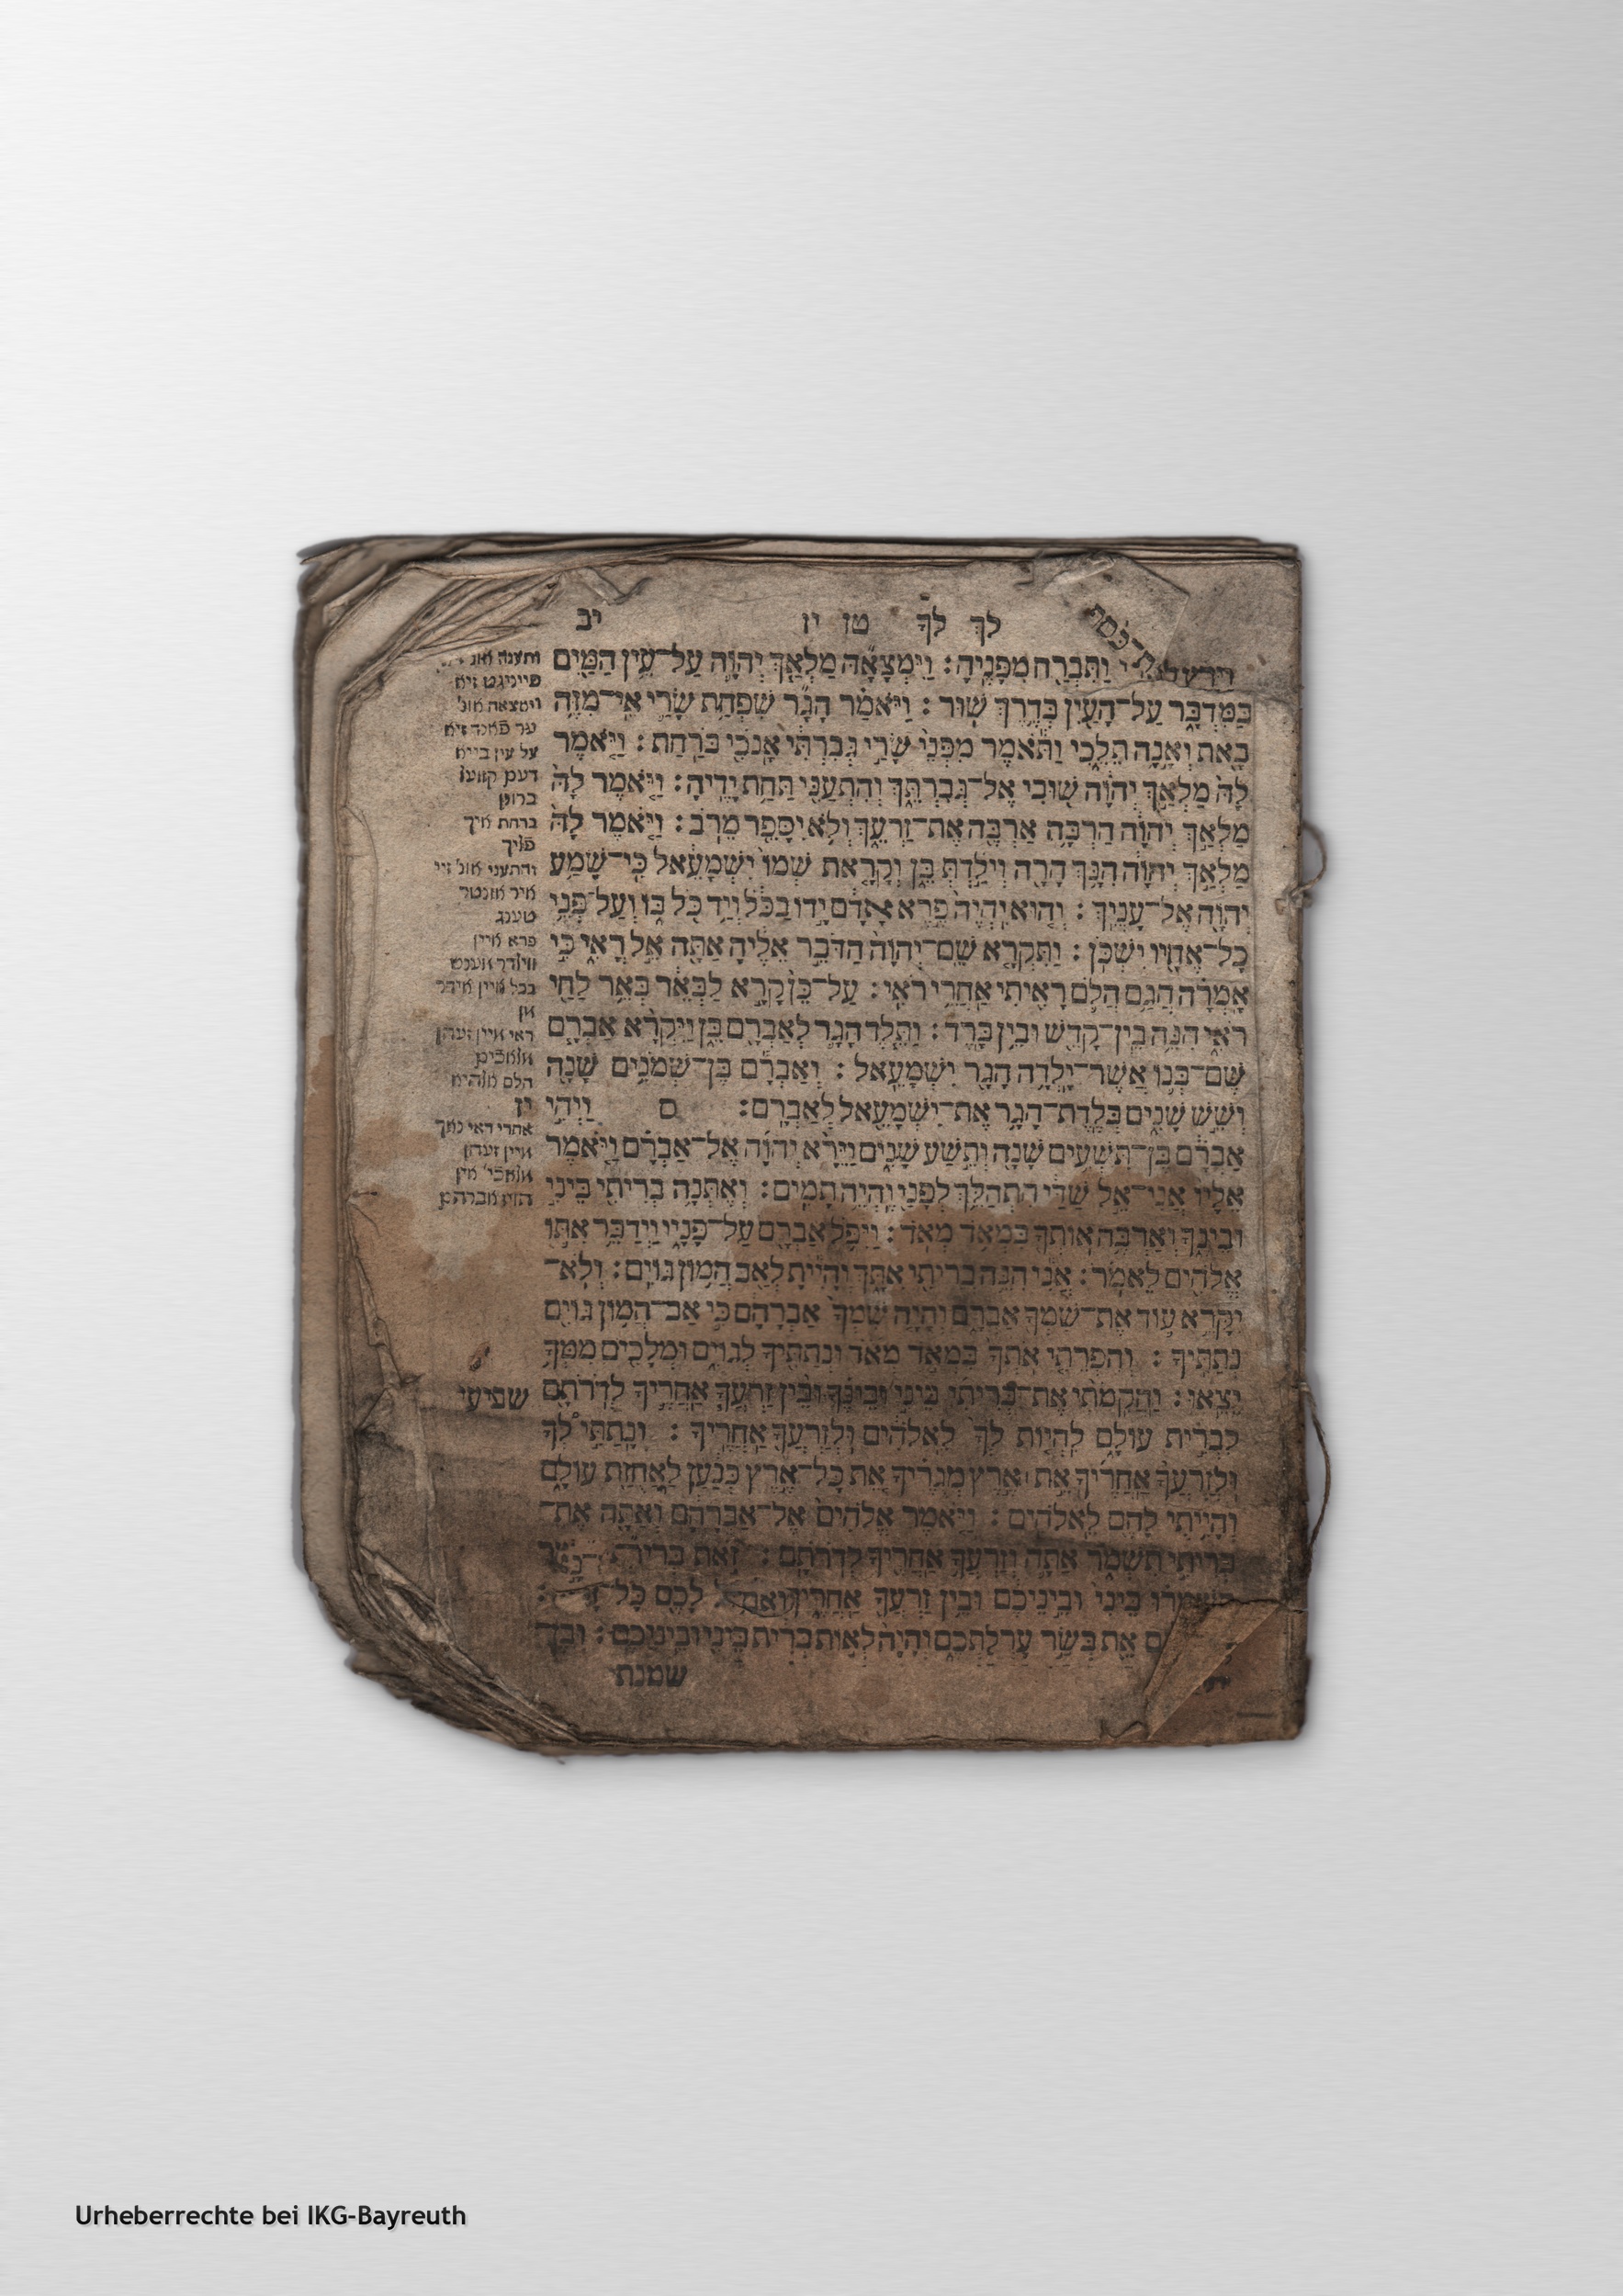 לך לך טז יז יב
וַתִּבְרַח מִפָּנֶיהָ: וַיִּמְצָאָהּ מַלְאַךְ יְהוָה עַל־עֵין הַמַּיִם
בַּמִּדְבָּר עַל־הָעַיִן בְּדֶרֶךְ שׁוּר: וַיֹּאמַר הָגָר שִׁפְחַת שָׂרַי אֵי־מִזֶּה
בָאת וְאָנָה תֵלֵכִי וַתֹּאמֶר מִפְּנֵי שָׂרַי גְּבִרְתִּי אָנֹכִי בֹּרַחַת: וַיֹּאמֶר
לָהּ מַלְאַךְ יְהוָה שׁוּבִי אֶל־גְּבִרְתֵּךְ וְהִתְעַנִּי תַּחַת יָדֶיהָ: וַיֹּאמֶר לָהּ
מַלְאַךְ יְהוָה הַרְבָּה אַרְבֶּה אֶת־זַרְעֵךְ וְלֹא יִסָּפֵר מֵרֹב: וַיֹּאמֶר לָהּ
מַלְאַךְ יְהוָה הִנָּךְ הָרָה וְיֹלַדְתְּ בֵּן וְקָרָאת שְׁמוֹ יִשְׁמָעֵאל כִּי־שָׁמַע
יְהוָה אֶל־עָנְיֵךְ: וְהוּא יִהְיֶה פֶּרֶא אָדָם יָדוֹ בַכֹּל וְיַד כֹּל בּוֹ וְעַל־פְּנֵי
כָל־אֶחָיו יִשְׁכֹּן: וַתִּקְרָא שֵׁם־יְהוָה הַדֹּבֵר אֵלֶיהָ אַתָּה אֵל רֳאִי כִּי
אָמְרָה הֲגַם הֲלֹם רָאִיתִי אַחֲרֵי רֹאִי: עַל־כֵּן קָרָא לַבְּאֵר בְּאֵר לַחַי
רֹאִי הִנֵּה בֵין־קָדֵשׁ וּבֵין בָּרֶד: וַתֵּלֶד הָגָר לְאַבְרָם בֵּן וַיִּקְרָא אַבְרָם
שֶׁם־בְּנוֹ אֲשֶׁר־יָלְדָה הָגָר יִשְׁמָעֵאל: וְאַבְרָם בֶּן־שְׁמֹנִים שָׁנָה
וְשֵׁשׁ שָׁנִים בְּלֶדֶת־הָגָר אֶת־יִשְׁמָעֵאל לְאַבְרָם: ס וַיְהִי
אַבְרָם בֶּן־תִּשְׁעִים שָׁנָה וְתֵשַׁע שָׁנִים וַיֵּרָא יְהוָה אֶל־אַבְרָם וַיֹּאמֶר
אֵלָיו אֲנִי־אֵל שַׁדַּי הִתְהַלֵּךְ לְפָנַי וֶהְיֵה תָמִים: וְאֶתְּנָה בְרִיתִי בֵּינִי
וּבֵינֶךָ וְאַרְבֶּה אוֹתְךָ בִּמְאֹד מְאֹד: וַיִּפֹּל אַבְרָם עַל־פָּנָיו וַיְדַבֵּר אִתּוֹ
אֱלֹהִים לֵאמֹר: אֲנִי הִנֵּה בְרִיתִי אִתָּךְ וְהָיִיתָ לְאַב הֲמוֹן גּוֹיִם: וְלֹא־
יִקָּרֵא עוֹד אֶת־שִׁמְךָ אַבְרָם וְהָיָה שִׁמְךָ אַבְרָהָם כִּי אַב־הֲמוֹן גּוֹיִם
נְתַתִּיךָ: וְהִפְרֵתִי אֹתְךָ בִּמְאֹד מְאֹד וּנְתַתִּיךָ לְגוֹיִם וּמְלָכִים מִמְּךָ
יֵצֵאוּ: וַהֲקִמֹתִי אֶת־בְּרִיתִי בֵּינִי וּבֵינֶךָ וּבֵין זַרְעֲךָ אַחֲרֶיךָ לְדֹרֹתָם
לִבְרִית עוֹלָם לִהְיוֹת לְךָ לֵאלֹהִים וּלְזַרְעֲךָ אַחֲרֶיךָ: וְנָתַתִּי לְךָ
וּלְזַרְעֲךָ אַחֲרֶיךָ אֵת אֶרֶץ מְגֻרֶיךָ אֵת כָּל־אֶרֶץ כְּנַעַן לַאֲחֻזַּת עוֹלָם
וְהָיִיתִי לָהֶם לֵאלֹהִים: וַיֹּאמֶר אֱלֹהִים אֶל־אַבְרָהָם וְאַתָּה אֶת־
בְּרִיתִי תִשְׁמֹר אַתָּה וְזַרְעֲךָ אַחֲרֶיךָ לְדֹרֹתָם: זֹאת
בֵּינִי וּבֵינֵיכֶם וּבֵין זַרְעֲךָ אַחֲרֶיךָ לָכֶם כָּל־
אֵת בְּשַׂר עָרְלַתְכֶם וְהָיָה לְאוֹת בְּרִית בֵּינִי וּבֵינֵיכֶם: וּבֶן
שמנת
פייניגט זיא
וימצאה אונ'
ער פאנד זיא
על עין בייא
דעם קוועל
ברונן
ברחת איך
פליך
והתעני אונ' זיי
איר אונטר
טענג
פרא איין
ווילדר
בכל איין אידר
אן
ראי איין זעהן
הלם אהיא
יז
אחרי ראי נאך
איין זעהן
שביעי
Urheberrechte bei IKG-Bayreuth